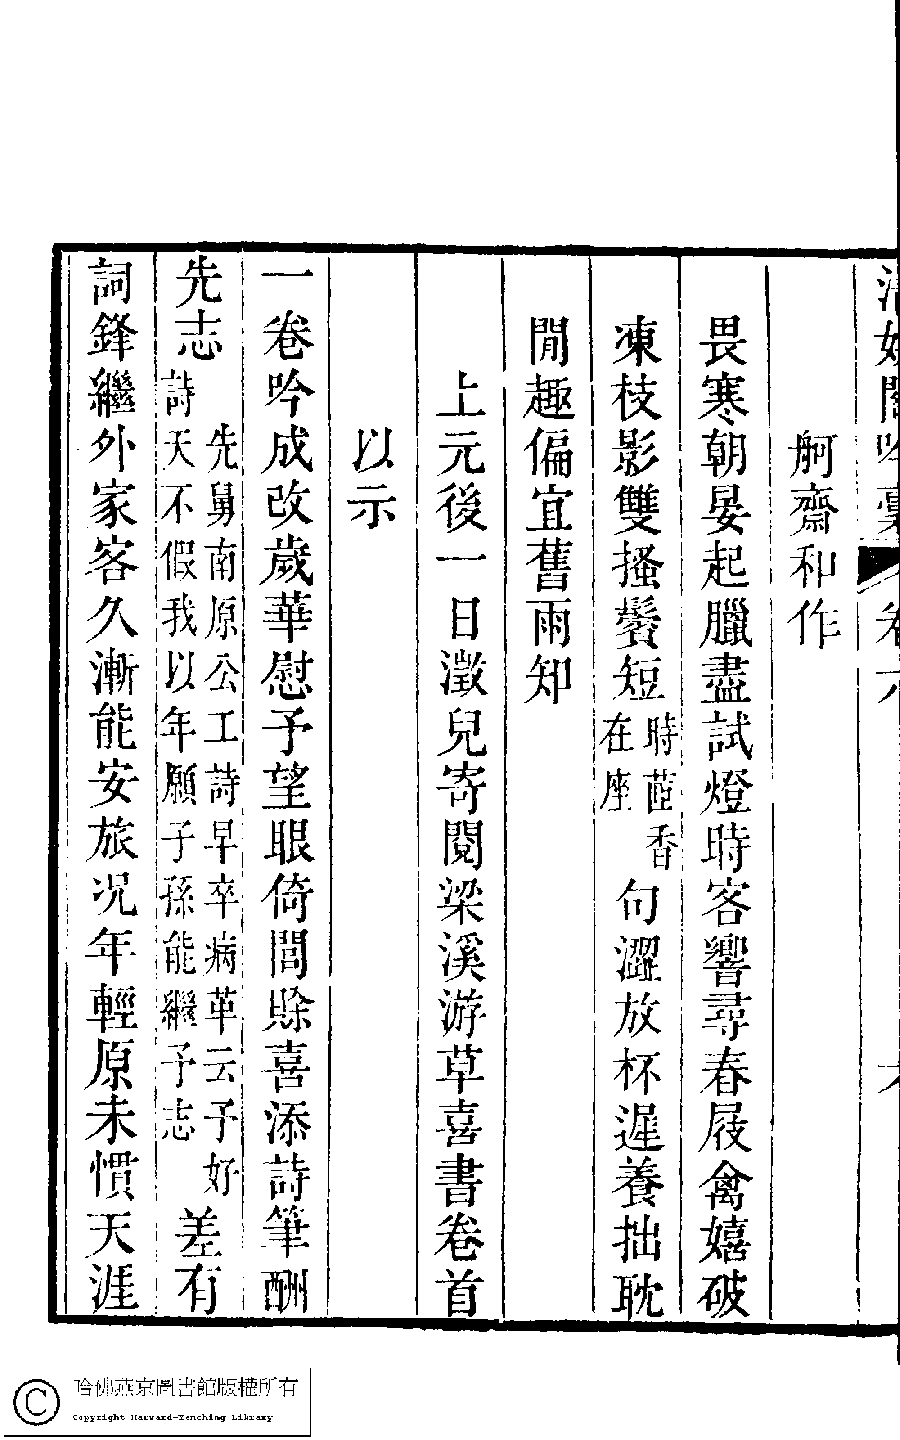 清娛閣吟稾 卷六
舸齋和作
畏寒朝晏起臘盡試燈時客響尋春屐禽嬉破
凍枝影雙搔鬢短時茝香在座句澀放杯遲養拙耽
閒趣偏宜舊雨知
上元後一日澂兒寄閱梁溪游草喜書卷首
以示
一卷吟成改歲華慰予望眼倚閭賒喜添詩筆酬
先志先舅南原公工詩早卒病革云予好詩天不假我以年願子孫能繼予志差有
詞鋒繼外家客久漸能安旅况年輕原未慣天涯
哈佛燕京圖書館版權所有
Copyright Harvard-Yenching Library